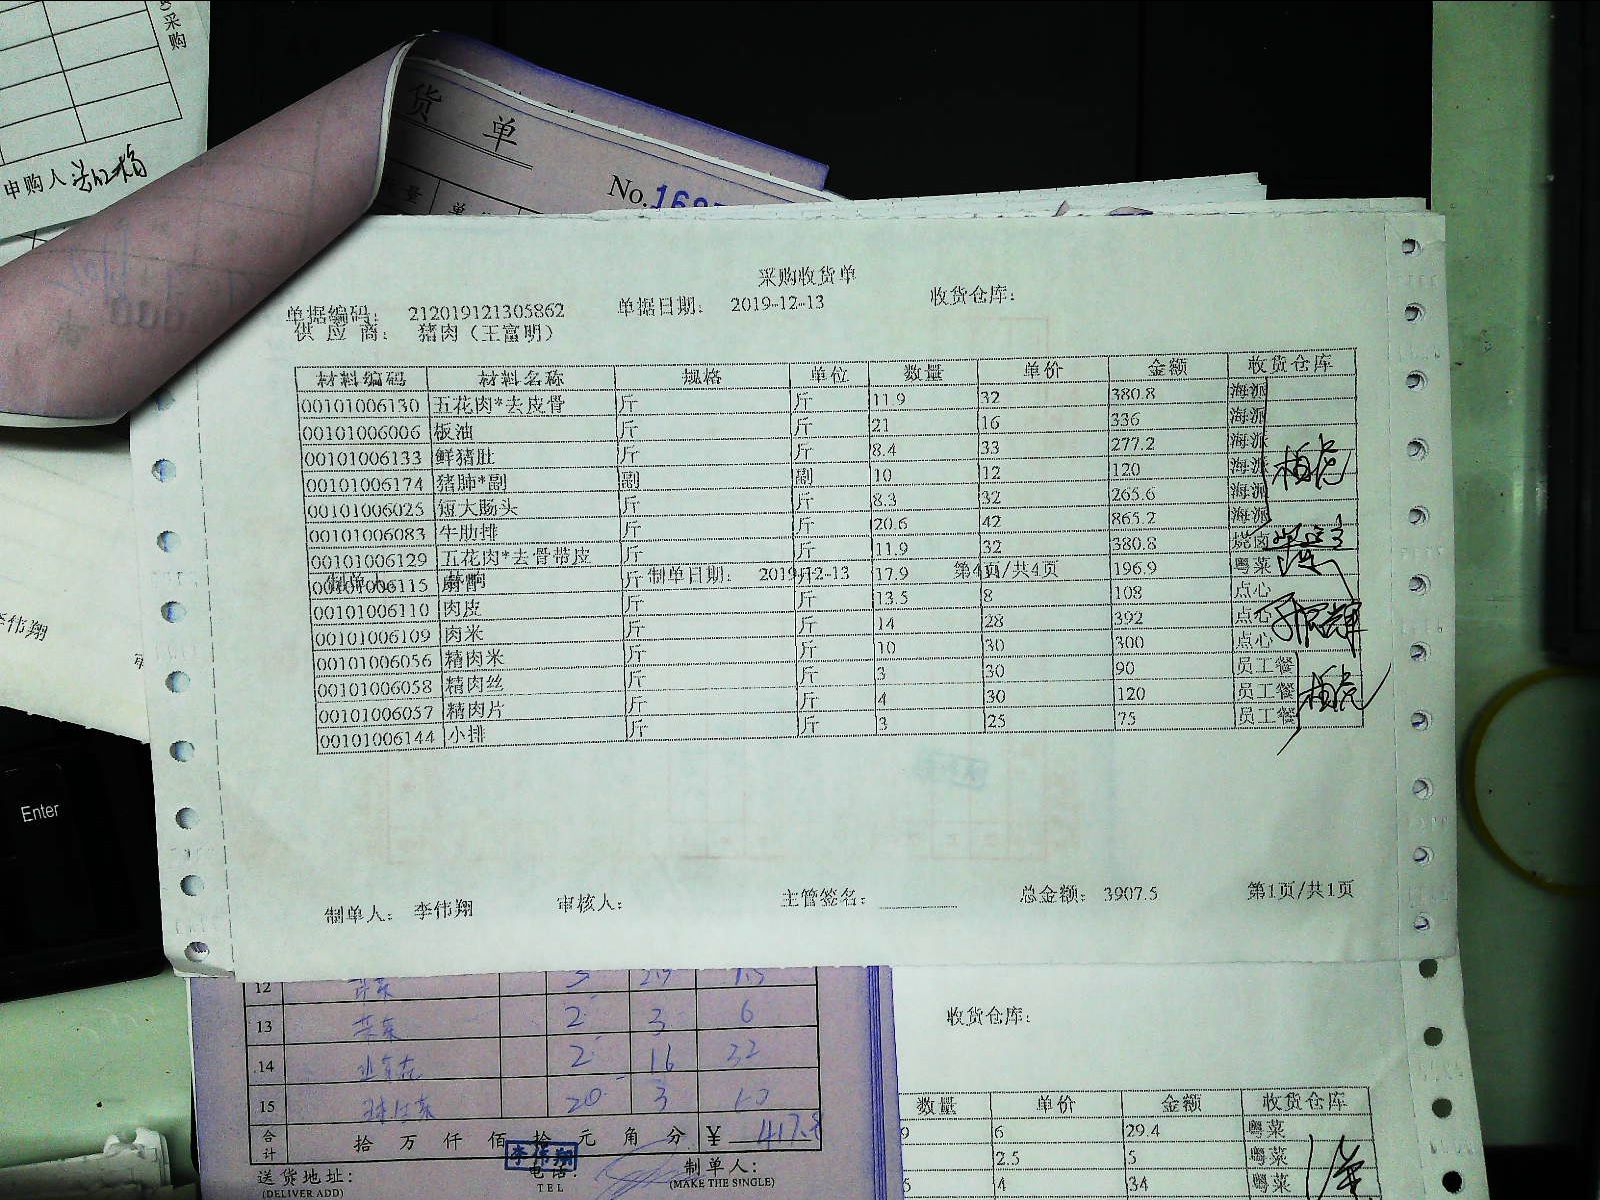 采购
申购人
货 单
No.
采购收货单
单据编码： 212019121305862 单据日期： 2019-12-13 收货仓库：
供 应 商： 猪肉（王富明）
材料编码 材料名称 规格 单位 数量 单价 金额 收货仓库
00101006130 五花肉*去皮骨 斤 斤 11.9 32 380.8 海派
00101006006 板油 斤 斤 21 16 336 海派
00101006133 鲜猪肚 斤 斤 8.4 33 277.2 海派
00101006174 猪肺*副 副 副 10 12 120 海派
00101006025 短大肠头 斤 斤 8.3 32 265.6 海派
00101006083 牛肋排 斤 斤 20.6 42 865.2 海派
00101006129 五花肉*去骨带皮 斤 斤 11.9 32 380.8 烧卤
00101006115 斤 制单日期： 2019-12-13 斤 17.9 第4页/共4页 196.9 粤菜
00101006110 肉皮 斤 斤 13.5 8 108 点心
00101006109 肉米 斤 斤 14 28 392 点心
00101006056 精肉米 斤 斤 10 30 300 点心
00101006058 精肉丝 斤 斤 3 30 90 员工餐
00101006057 精肉片 斤 斤 4 30 120 员工餐
00101006144 小排 斤 斤 3 25 75 员工餐
制单人： 李伟翔 审核人： 主管签名： 总金额： 3907.5 第1页/共1页
李伟翔
Enter
12
13 2 3 6
14 2 16 32
15 20 3
合计 拾 万 仟 佰 拾 元 角 分 ¥ 417.8
李伟翔
送货地址： 电话： 制单人：
(DELIVER ADD) TEL (MAKE THE SINGLE)
收货仓库：
数量 单价 金额 收货仓库
9 6 29.4 粤菜
2.5 5 粤菜
5 4 34 粤菜